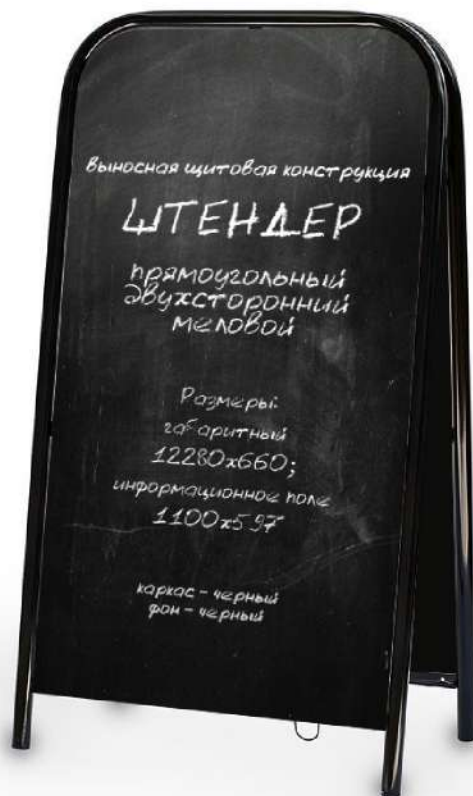 выносная щитовая конструкция
ШТЕНДЕР
прямоугольный
двухсторонний
меловой
Размеры:
габаритный
12280х660;
информационное поле
1100х597
каркас - черный
фон - черный